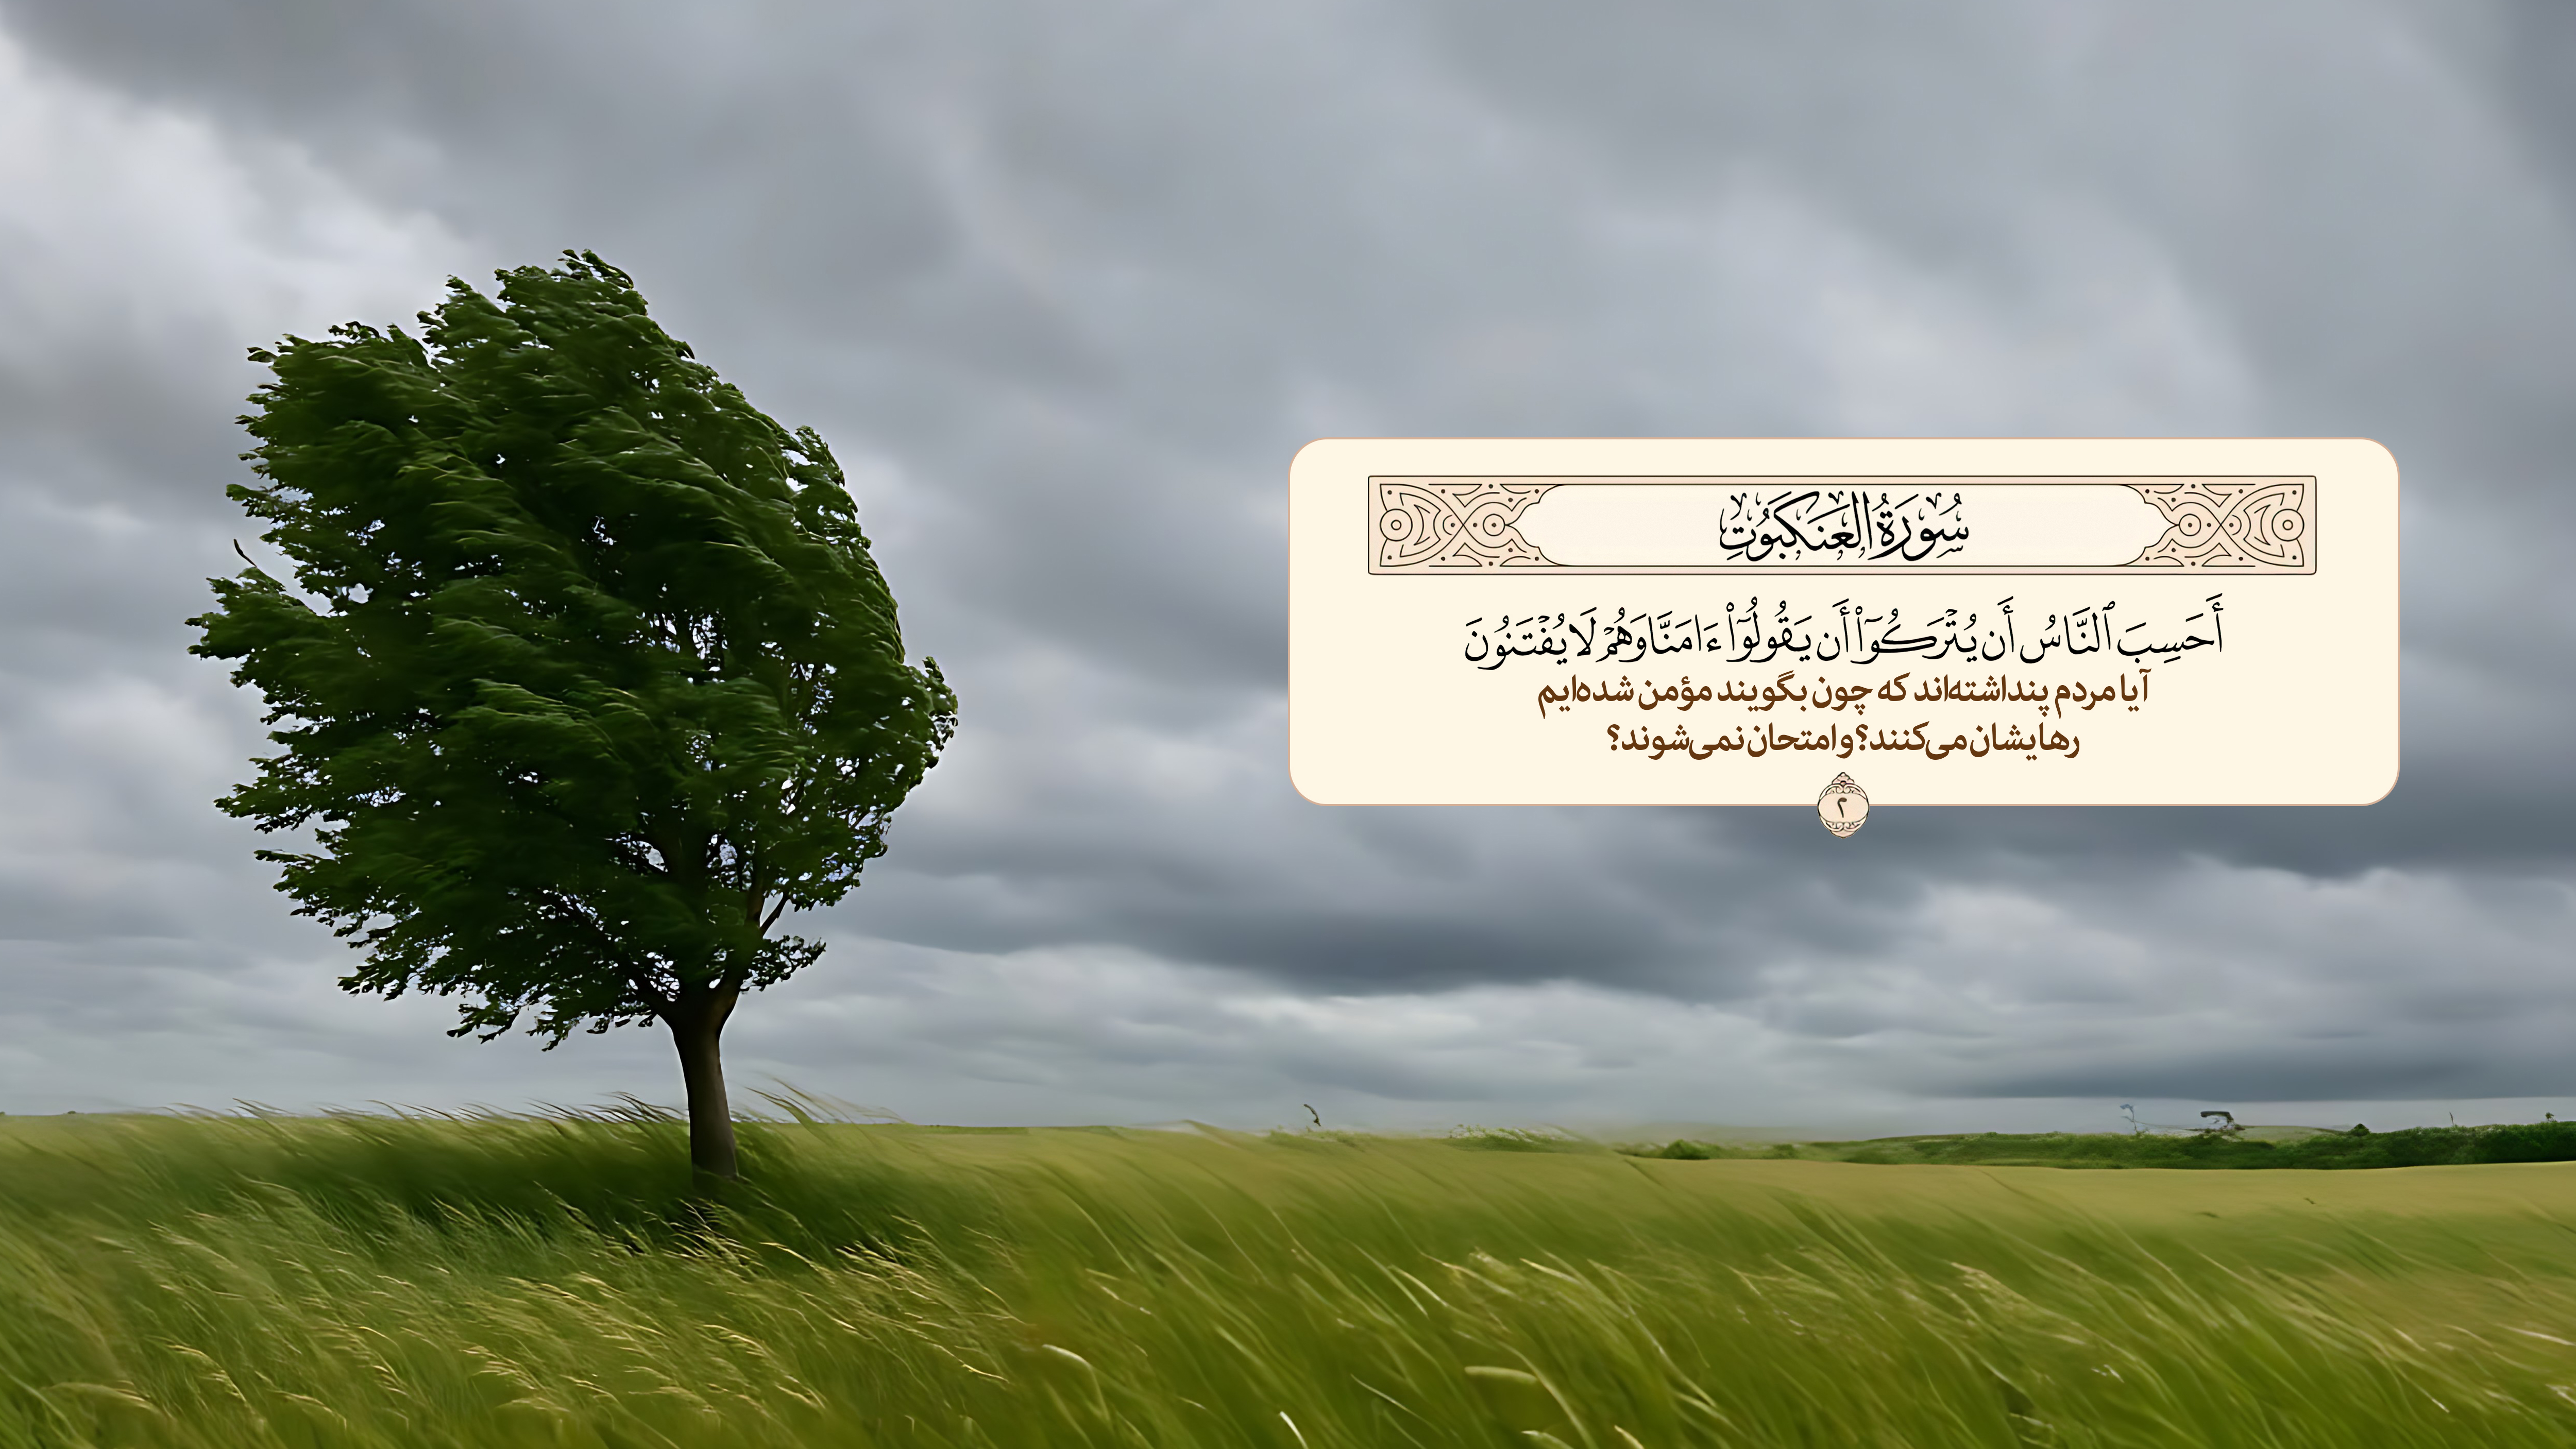 سُورَةُ العَنكَبُوتِ
أَحَسِبَ ٱلنَّاسُ أَن يُتۡرَكُوٓاْ أَن يَقُولُوٓاْ ءَامَنَّا وَهُمۡ لَا يُفۡتَنُونَ
آیا مردم پنداشته‌اند که چون بگویند مؤمن شده‌ایم
رهایشان می‌کنند؟ و امتحان نمی‌شوند؟
۲